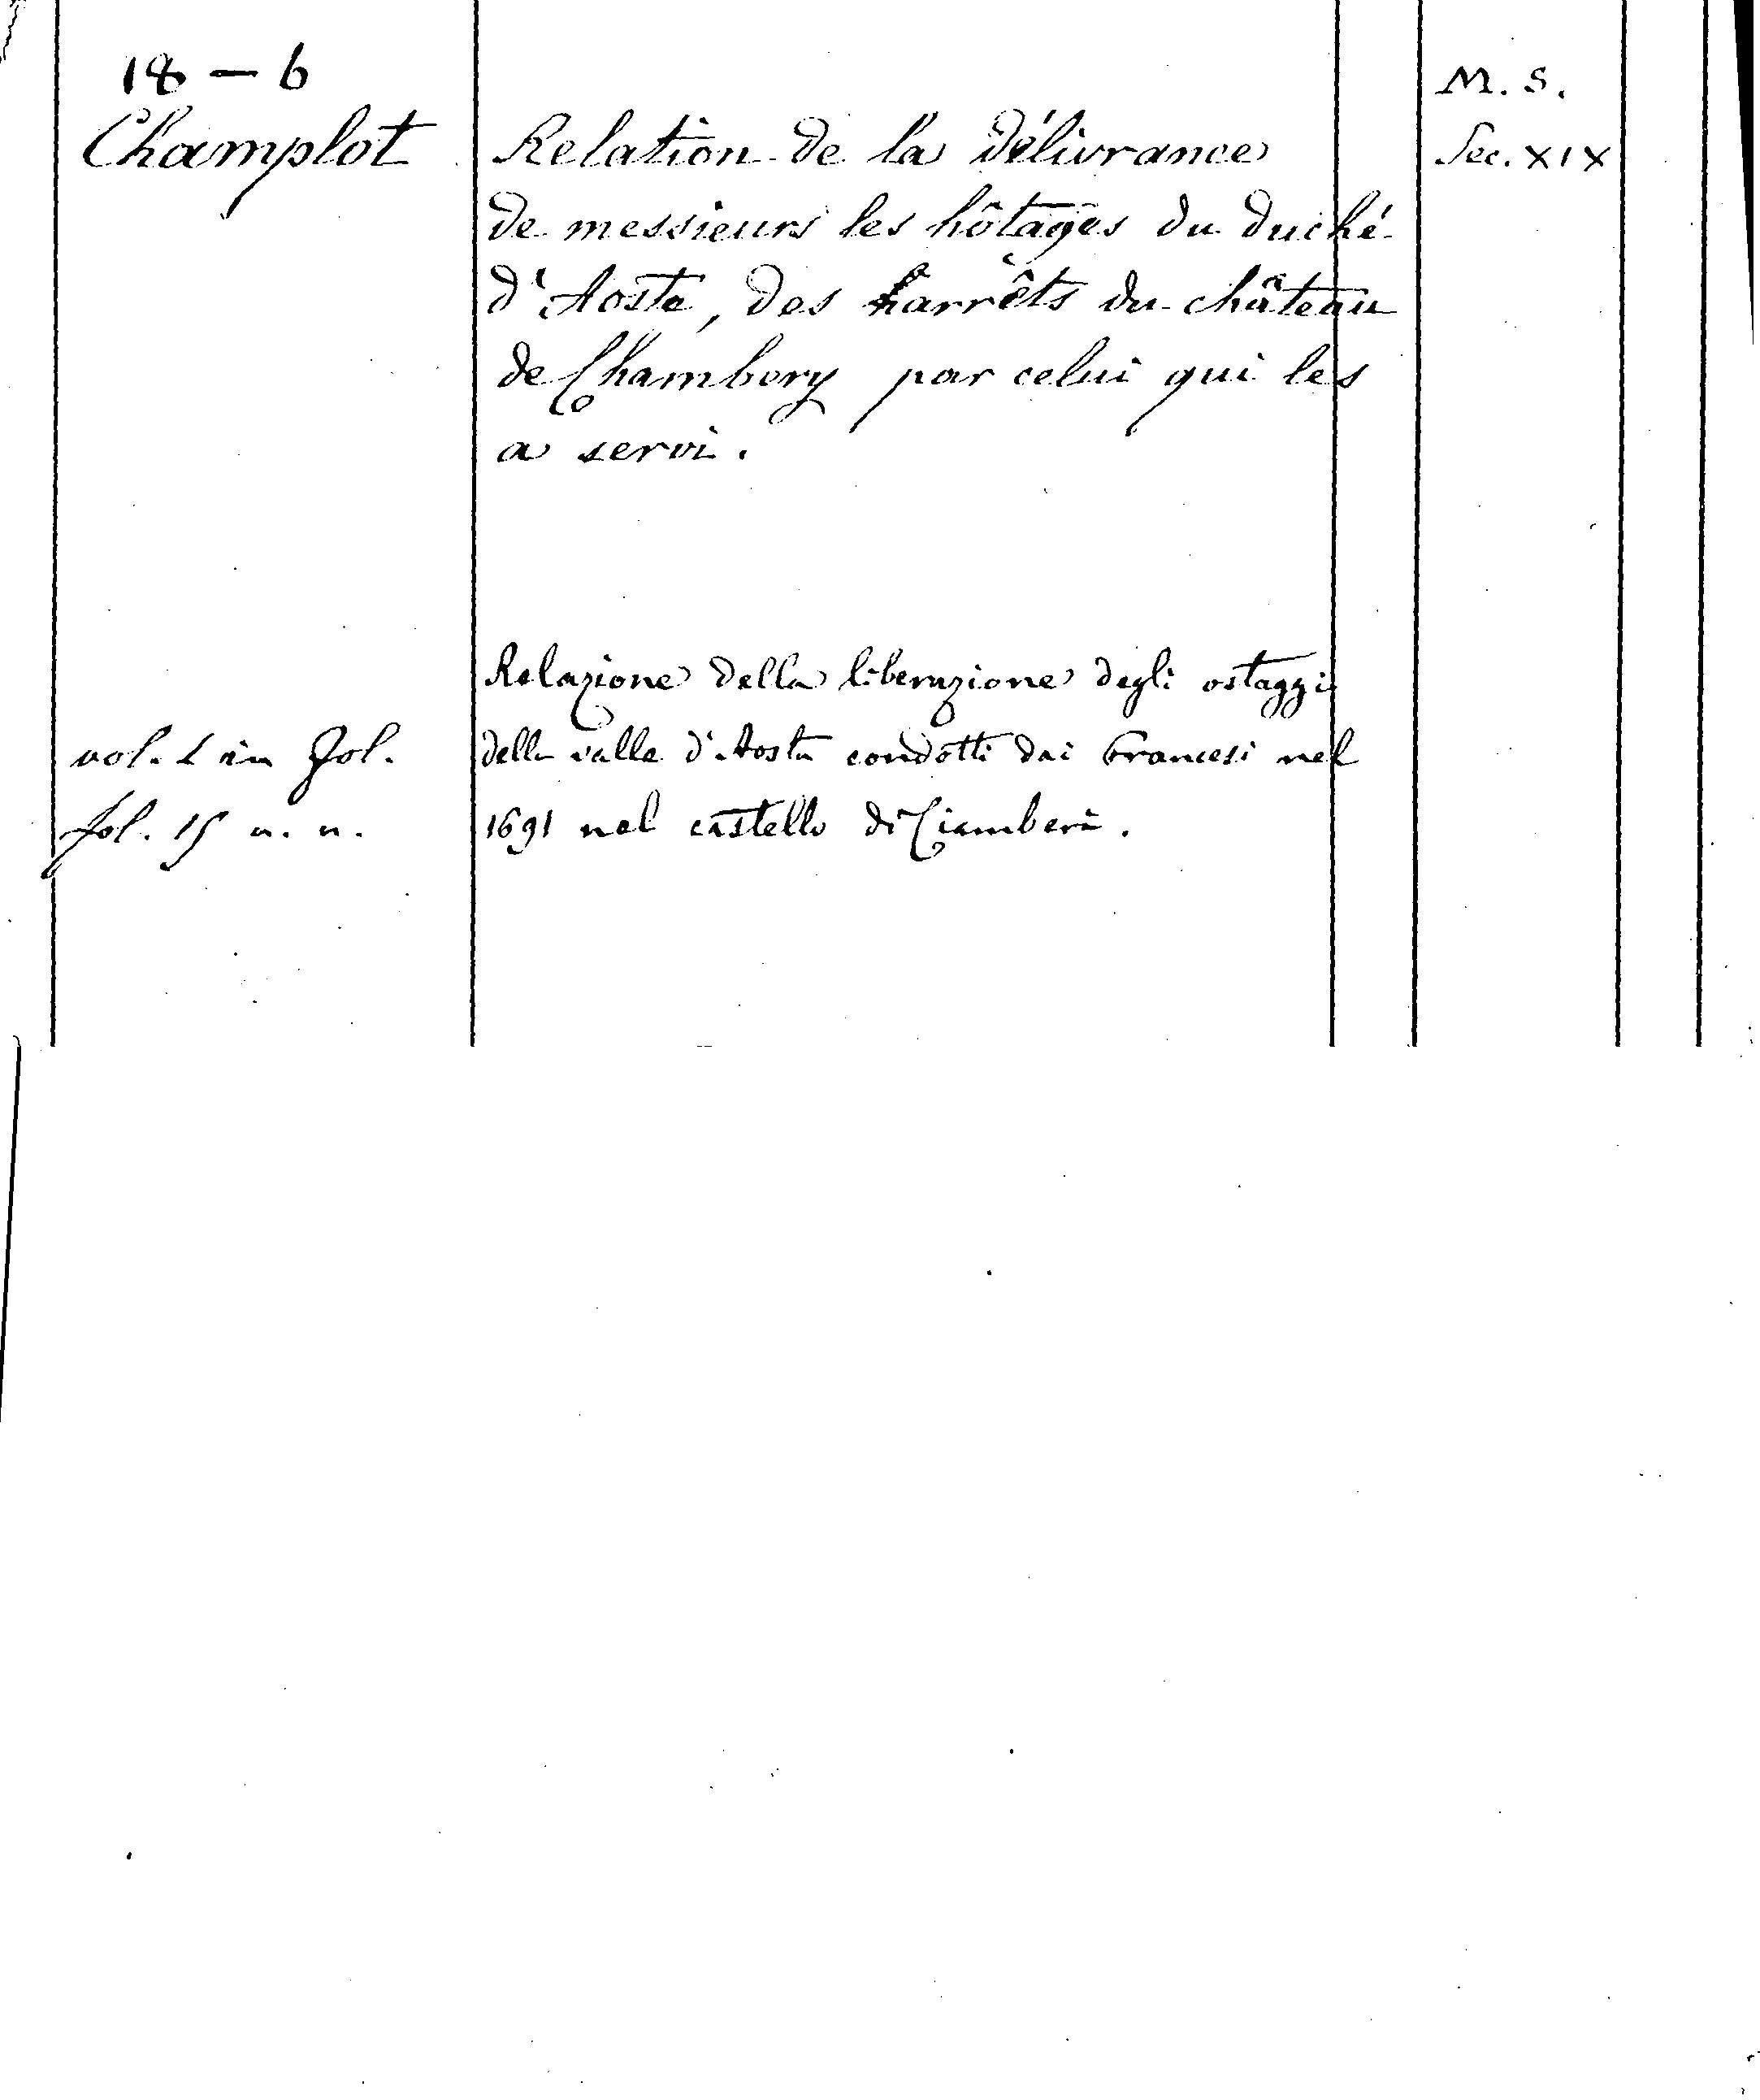 18 – 6
Champlot
Relation de la délivrance
de messieurs les hôtages du duché
d'Aoste, des harrêts du château
de Chambery par celui qui les
a servi.
M. S.
Sec. XIX
Relazione della liberazione degli ostaggi
della valle d'Aosta condotti dai Francesi nel
1691 nel castello di Ciamberì.
vol. 1 in fol.
fol. 15 n. n.